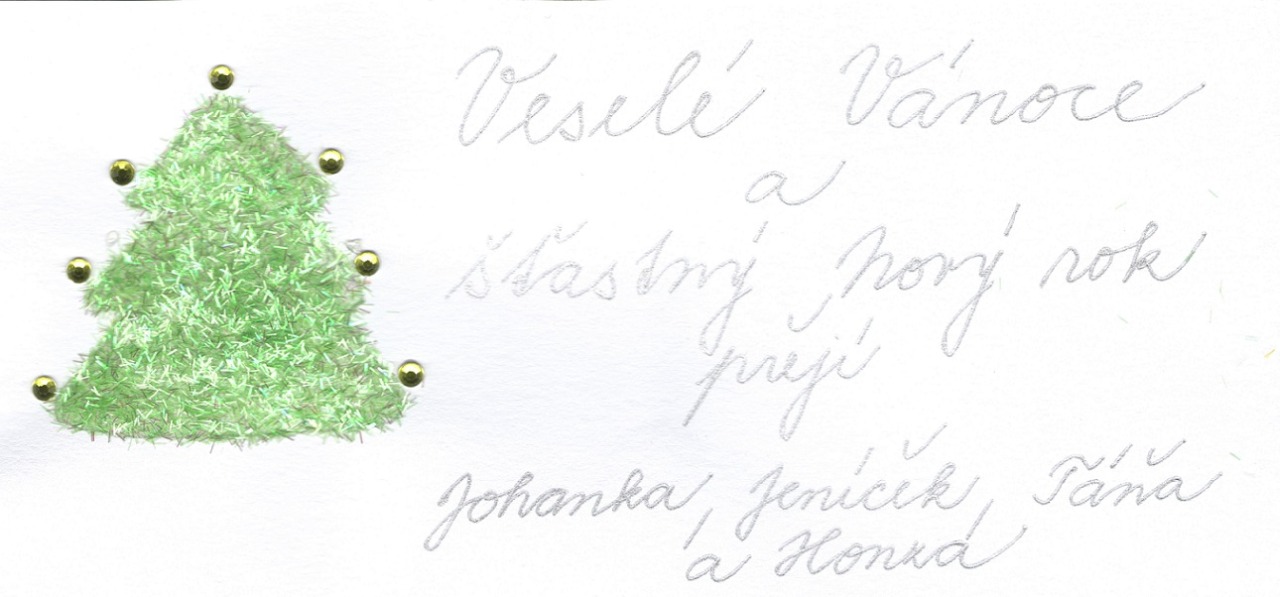 Veselé Vánoce
a
šťastný nový rok
přejí
Johanka, Jeníček, Táňa
a Honza